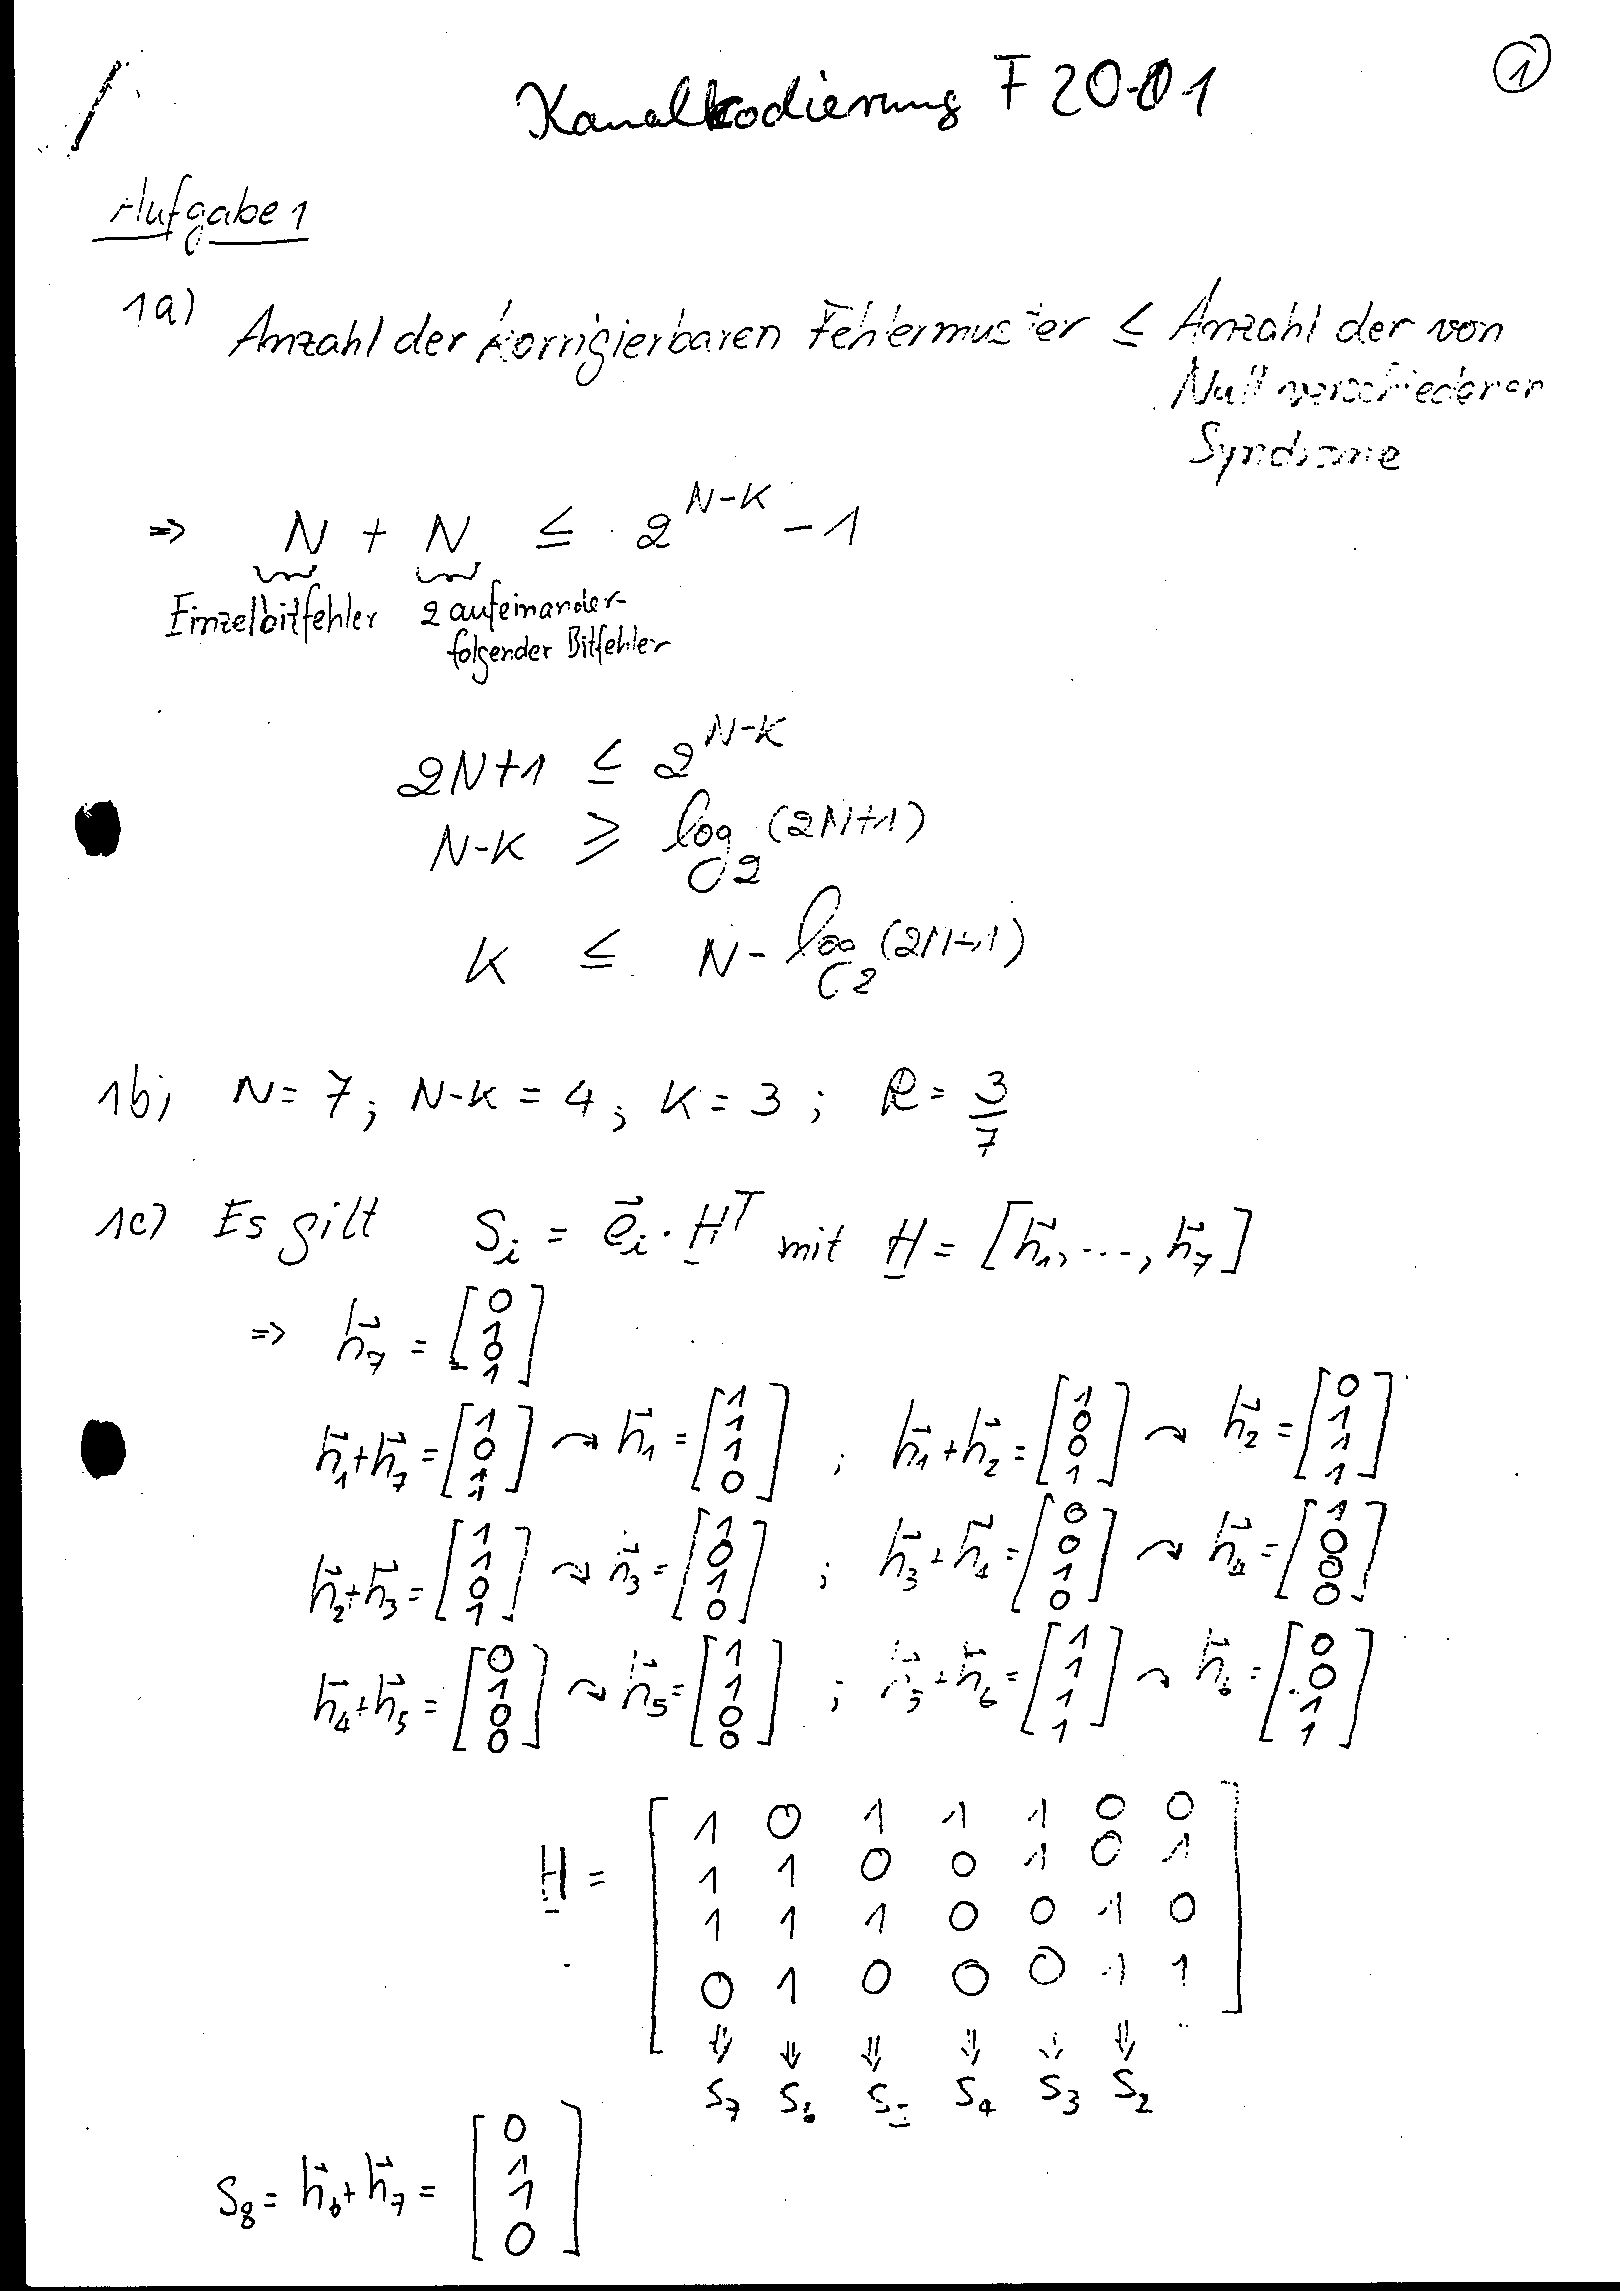 ①
Kanalkodierung F 2001
Aufgabe 1
1a) Anzahl der korrigierbaren Fehlermuster ≤ Anzahl der von
Null verschiedenen
Syndrome
⇒ N + N ≤ 2^{N-K} - 1
Einzelbitfehler 2 aufeinander-
folgender Bitfehler
2N+1 ≤ 2^{N-K}
N-K ≥ log_2 (2N+1)
K ≤ N - log_2 (2N+1)
1b) N = 7 ; N-K = 4 ; K = 3 ; R = 3/7
1c) Es gilt S_i = e⃗_i · H^T mit H = [h⃗_1, ..., h⃗_7]
⇒ h⃗_7 = [0 1 0 1]
h⃗_1 + h⃗_7 = [1 0 1 1] ↝ h⃗_1 = [1 1 1 0] ; h⃗_1 + h⃗_2 = [1 0 0 1] ↝ h⃗_2 = [0 1 1 1]
h⃗_2 + h⃗_3 = [1 1 0 1] ↝ h⃗_3 = [1 0 1 0] ; h⃗_3 + h⃗_4 = [0 0 1 0] ↝ h⃗_4 = [1 0 0 0]
h⃗_4 + h⃗_5 = [0 1 0 0] ↝ h⃗_5 = [1 1 0 0] ; h⃗_5 + h⃗_6 = [1 1 1 1] ↝ h⃗_6 = [0 0 1 1]
1 0 1 1 1 0 0
H = 1 1 0 0 1 0 1
1 1 1 0 0 1 0
0 1 0 0 0 1 1
⇓ ⇓ ⇓ ⇓ ⇓ ⇓
S_7 S_6 S_5 S_4 S_3 S_2
S_8 = h⃗_6 + h⃗_7 = [0 1 1 0]